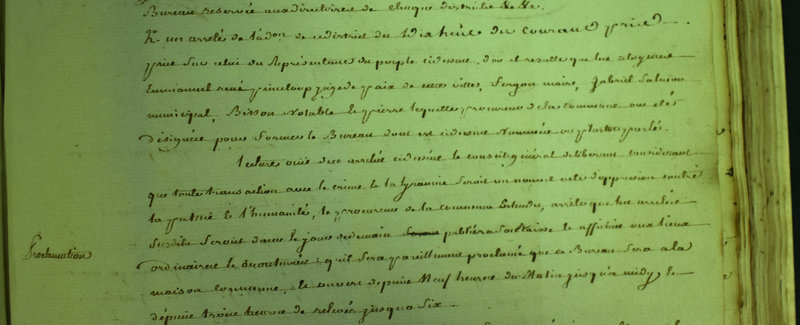 Bureau reservée aux directoires de chaque districts &c &c.
2° un arreté de l'adon de ce district du dixhuit du courant pris
pris sur celui du Représentant du peuple cidessus, d'où il resulte que les citoyens
Emmanuel rené pineloup juge de paix de cette ville, Sergon maire, Gabriel Salmon
municipal, Bisson Notable & pierre lequette procureur de la commune ont eté
désignée pour former le Bureau dont est cidessus Nommée ou plustot parlés.
Lecture ouïe des arretés cidessus le conseil général deliberant considerant
que toute transaction avec le crime & la tyrannie seroit un nouvel acte d'oppression contre
la patrie & l'humanité, le procureur de la commune Entendu, arrete que les arretés
susdits seront dans le jour de demain publiés & affichés aux lieux
ordinaires & accoutumés; qu'il sera pareillement proclamé que ce Bureau sera a la
Proclamation
maison commune, & ouvert depuis Neuf heures du Matin jusqu'a midy, &
depuis trois heures de relevée jusqua six.